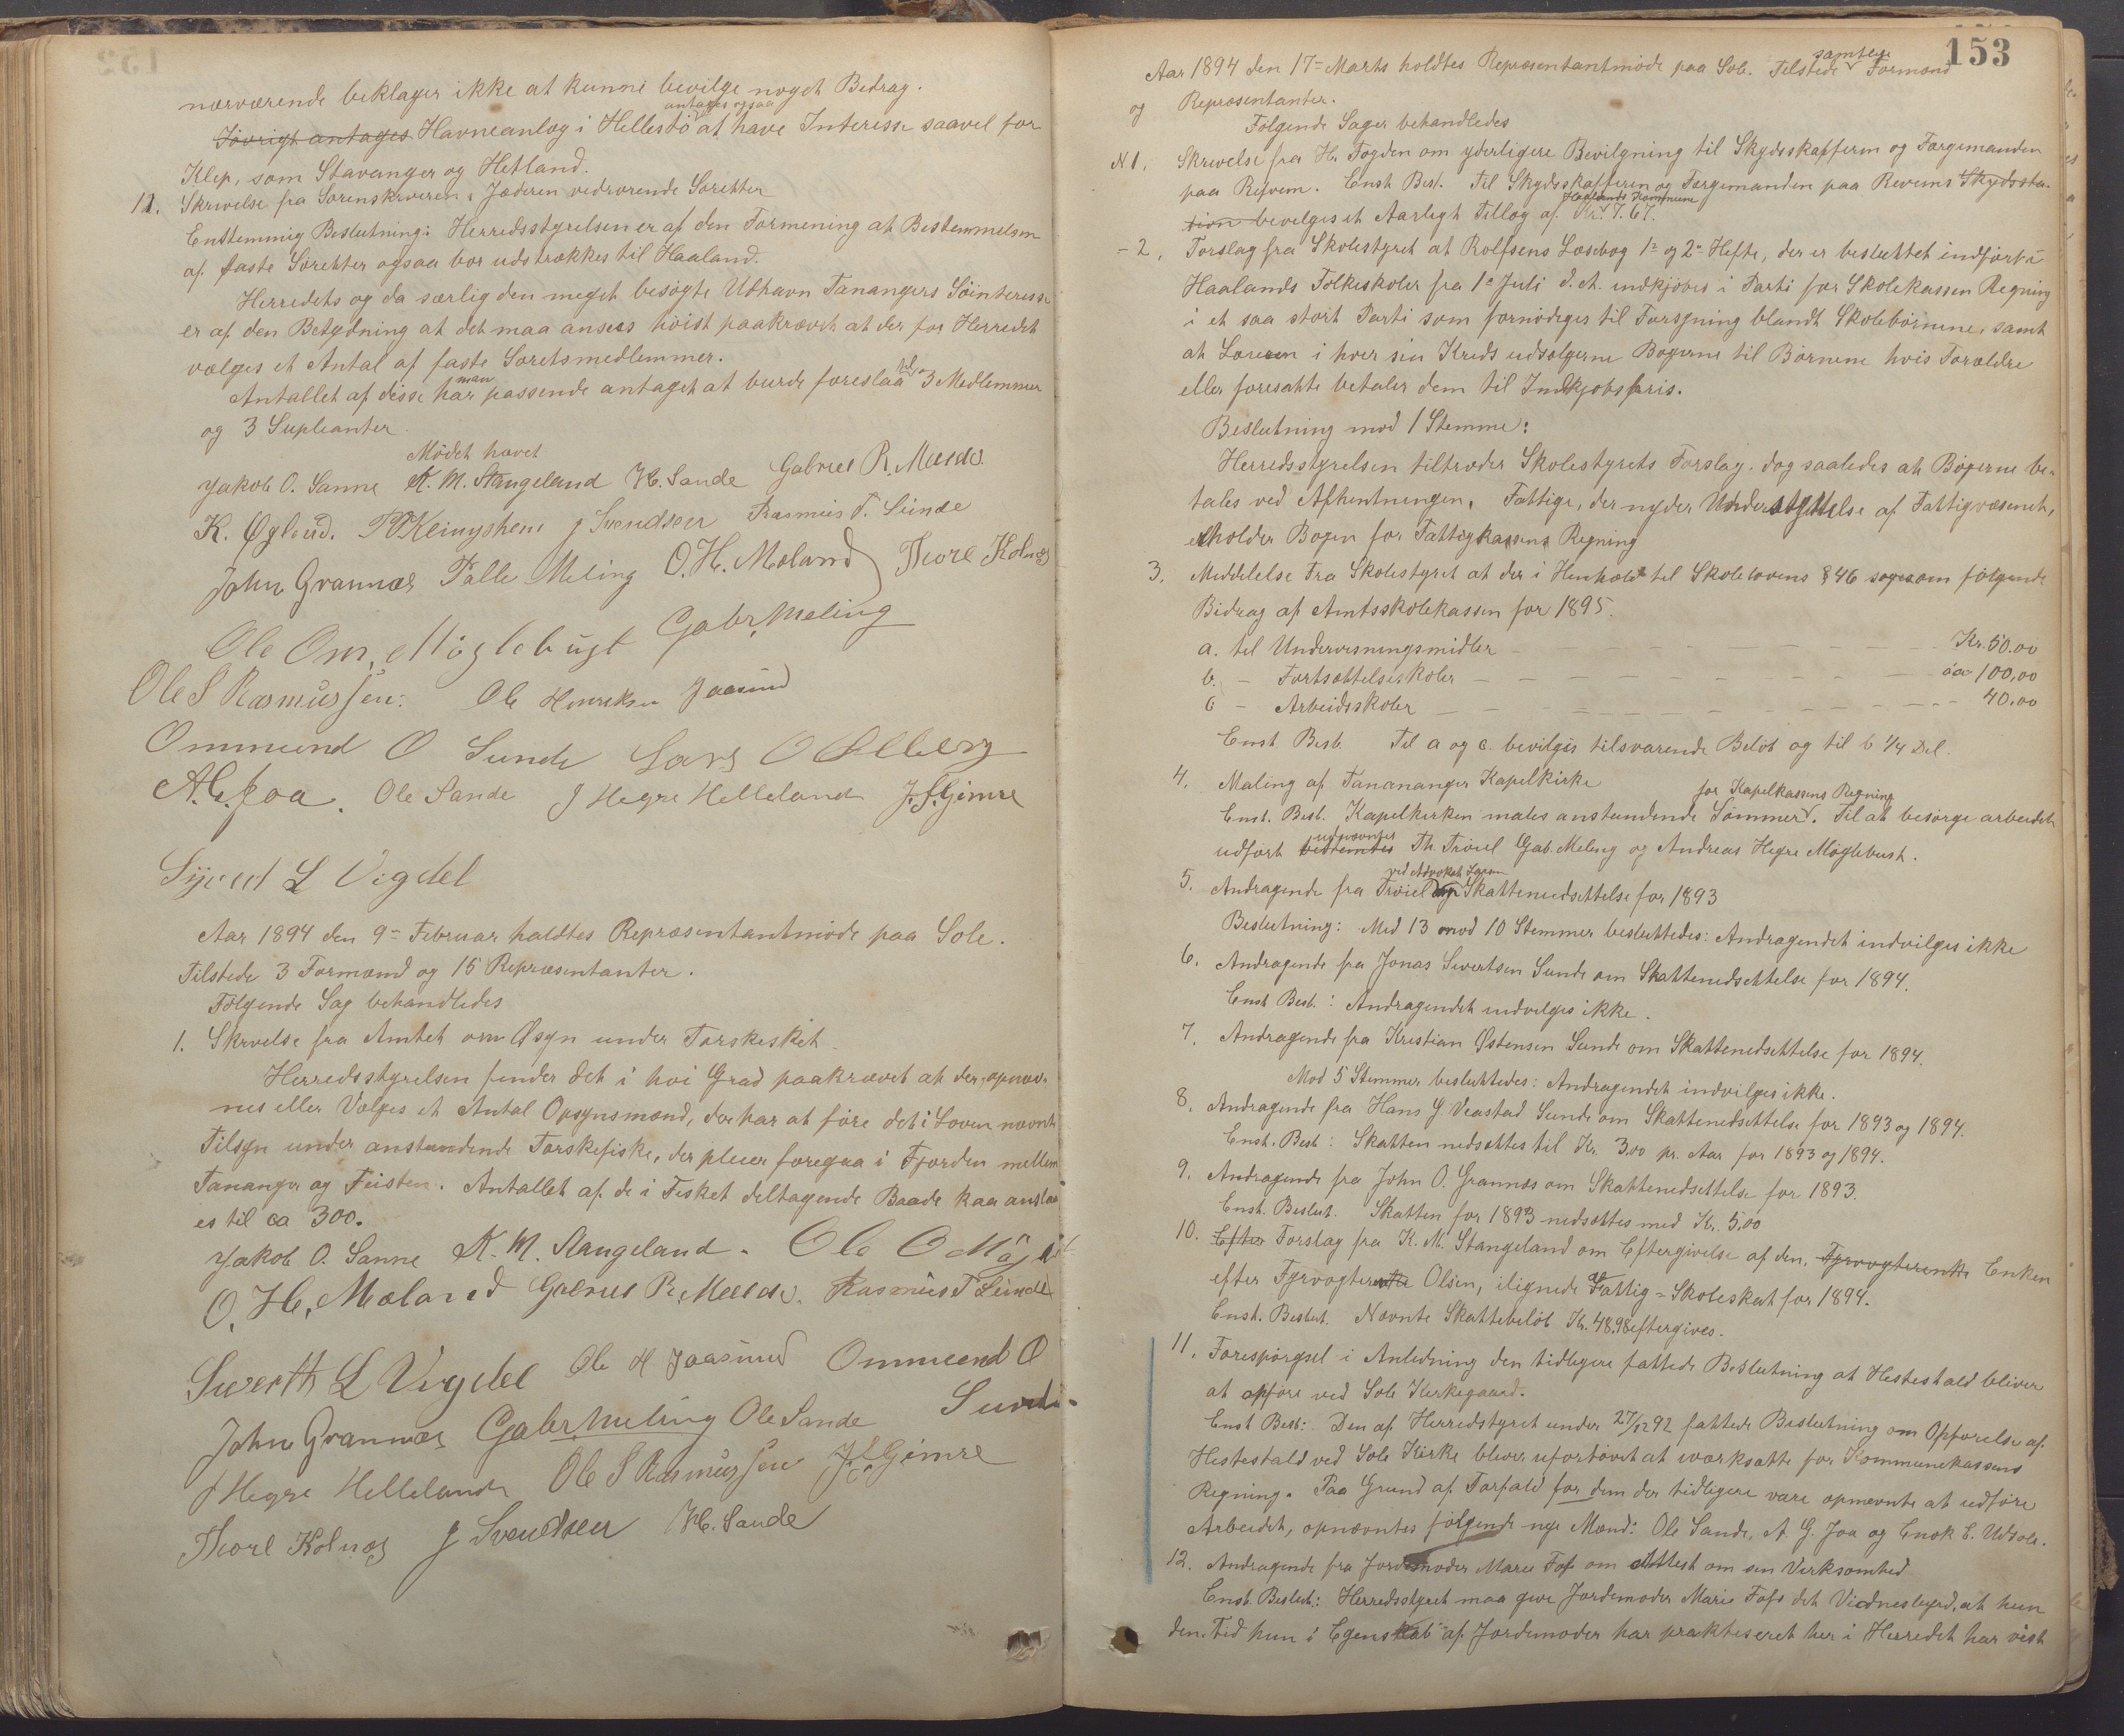 nærværende beklager ikke at kunne bevilge noget Bedrag.
Iövrigt antages Havneanlæg i Hellestö antages ogsaa at have Interesse saavel for
Klep, som Stavanger og Hetland.
11. Skrivelse fra Sorenskriveren i Jæderen vedrørende Söretter
Enstemmig Beslutning: Herredsstyrelsen er af den Formening at Bestemmelsen
af faste Söretter ogsaa bør udstrækkes til Haaland.
Herredets og da særlig den meget besøgte Udhavn Tanangers Söinteresse
er af den Betydning at det maa ansees höist paakrævet at der for Herredet
vælges et Antal af faste Söretsmedlemmer.
Antallet af disse har man passende antaget at burde foreslaa til 3 Medlemmer
og 3 Supleanter.
Mödet hævet
Jakob O. Sanne K. M. Stangeland H. Sande Gabriel R. Mælde.
K. Øglend. J Svendsen Rasmus T. Sunde
John Grannæs Talle Meling O. H. Moland Thore Kolnes
Ole Om. Möglebust Gabr. Meling
Ole S Rasmussen. Ole Henriksen Joasund
Ommund O Sunde Lars O
A. G. Joa. Ole Sande J Hegre Helleland J. S. Gimre
Sijvert L Vigdel
Aar 1894 den 9= Februar holdtes Repræsentantmøde paa Sole.
Tilstede 3 Formænd og 15 Repræsentanter.
Fölgende Sag behandledes
1. Skrivelse fra Amtet om Opsyn under Torskefisket.
Herredsstyrelsen finder det i höi Grad paakrævet at der opnæv-
nes eller Vælges et Antal Opsynsmænd, der har at före det i Loven nævnte
Tilsyn under anstundende Torskefiske, der pleier foregaa i Fjorden mellem
Tananger og Feisten. Antallet af de i Fisket deltagende Baade kan anslaa-
es til ca 300.
Jakob O. Sanne K. M. Stangeland. Ole O
O. H. Mæland Gabriel R. Mælde. Rasmus T Sunde
Sivert L Vigdel Ole H Joasund Ommund O
Sunde
John Grannæs Gabr Meling Ole Sande
J Hegre Helleland Ole S Rasmussen J. S. Gimre
Thore Kolnes J Svendsen H. Sande
153
Aar 1894 den 17= Marts holdtes Repræsentantmøde paa Sole. Tilstede samtlige Formænd
og Repræsentanter.
Fölgende Sager behandledes
N 1. Skrivelse fra H. Fogden om yderligere Bevilgning til Skydsskafferen og Færgemanden
paa Refvem. Enst Besl. Til Skydsskafferen og Færgemanden paa Revems Skydssta-
tion bevilges et Aarligt Tillæg af Haalands Kommune Kr. 7.67.
- 2. Forslag fra Skolestyret at Rolfsens Læsebog 1= og 2= Hefte, der er besluttet indfört i
Haalands Folkeskoler fra 1= Juli d. A. indkjöbes i Parti for Skolekassen Regning
i et saa stort Parti som fornödiges til Forsyning blandt Skolebörnene, samt
at Læreren i hver sin Kreds udsælgerne Bøgerne til Börnene hvis Forældre
eller foresatte betaler dem til Indkjøbspris.
Beslutning mod 1 Stemme:
Herredsstyrelsen tiltræder Skolestyrets Forslag. dog saaledes at Bøgerne be-
tales ved Afhentningen. Fattige, der nyder Understøttelse af Fattigvæsenet,
erholder Bogen for Fattigkassens Regning
3. Meddelelse Fra Skolestyret at der i Henhold til Skolelovens § 46 söges om fölgende
Bidrag af Amtsskolekassen for 1895.
a. til Undervisningsmidler Kr. 50.00
b. - Fortsættelseskoler 100,00
c - Arbeidsskoler 40.00
Enst Besl. Til a og c. bevilges tilsvarende Belöb og til b ¼ Del.
4. Maling af Tanananger Kapelkirke
Enst. Besl. Kapelkirken males anstundende Sommer for Kapelkassens Regning. Til at besörge arbeidet
udfört bestemtes udnævntes Th. Tröiel Gab. Meling og Andreas Hegre Möglebust.
5. Andragende fra Tröiel ved Advokat om Skattenedsettelse for 1893
Beslutning: Med 13 mod 10 Stemmer besluttedes: Andragendet indvilges ikke
6. Andragende fra Jonas Sivertsen Sunde om Skattenedsettelse for 1894.
Enst Besl.: Andragendet indvilges ikke.
7. Andragende fra Kristian Østensen Sunde om Skattenedsettelse for 1894.
Mod 5 Stemmer besluttedes: Andragendet indvilges ikke.
8. Andragende fra Hans G. Veastad Sunde om Skattenedsettelse for 1893 og 1894.
Enst. Besl: Skatten nedsættes til Kr. 3,00 pr. Aar for 1893 og 1894.
9. Andragende fra John O. Grannæs om Skattenedsettelse for 1893.
Enst. Beslut. Skatten for 1893 nedsættes med Kr. 5,00
10. Efter Forslag fra K. M. Stangeland om Eftergivelse af den, Fyrvogterenke Enken
efter Fyrvogter Olsen, ilignede Fattig= Skoleskat for 1894.
Enst. Beslut. Nævnte Skattebelöb Kr. 48,98 eftergives.
11. Forespörgsel i Anledning den tidligere fattede Beslutning at Hestestald bliver
at opföre ved Sole Kirkegaard.
Enst Besl: Den af Herredstyret under 27/12 92 fattede Beslutning om Opförelse af
Hestestald ved Sole Kirke bliver ufortövet at iværksætte for Kommunekassens
Regning. Paa Grund af Forfald for dem der tidligere være opnævnte at udföre
Arbeidet, opnævntes fölgende nye Mænd: Ole Sande, A. G. Joa og Enok E. Udsole.
12. Andragende fra Jordemoder Marie Fos om Attest om sin Virksomhed
Enst. Beslut.: Herredsstyret maa give Jordemoder Marie Fofs det Vidnesbyrd, at hun
den Tid hun i Egenskab af Jordemoder har praktiseret her i Herredet har vist